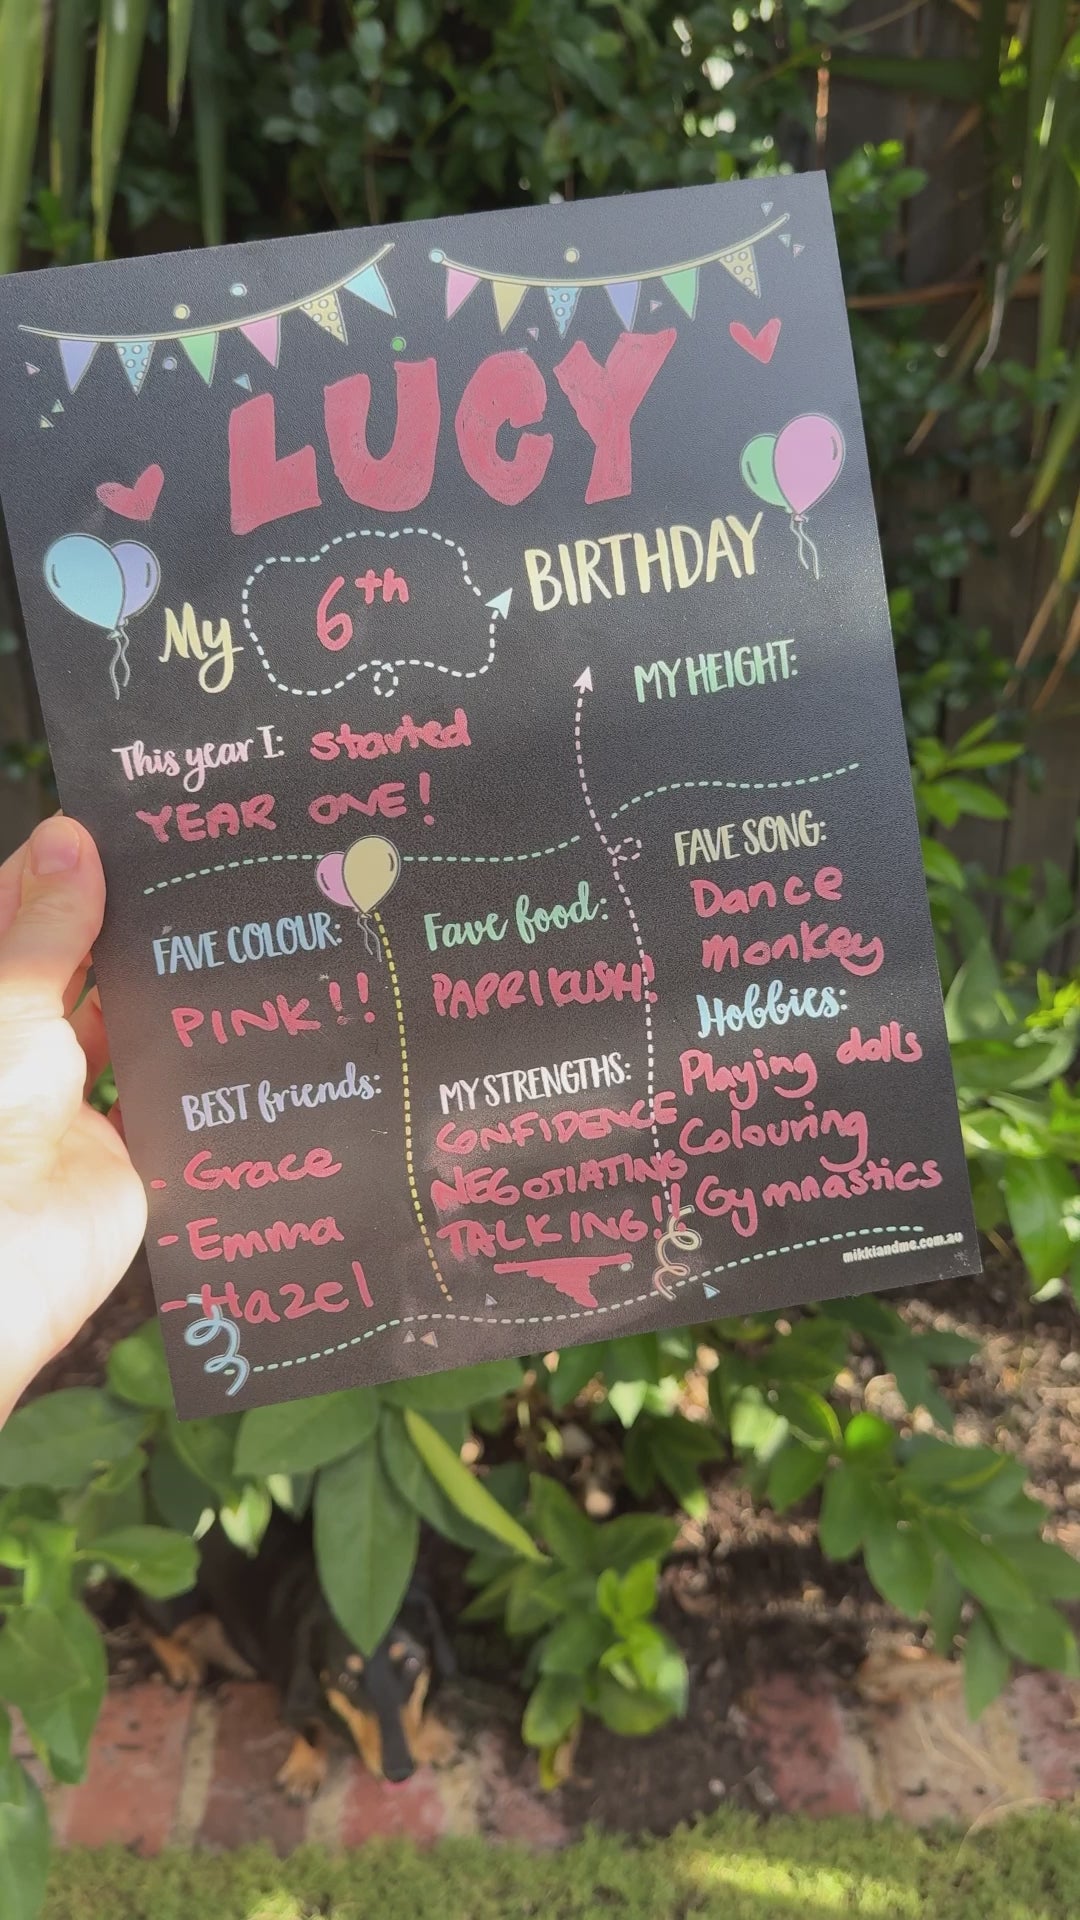 LUCY
My 6th BIRTHDAY
MY HEIGHT:
This year I: started
YEAR ONE!
FAVE COLOUR:
PINK!!
BEST friends:
- Grace
- Emma
- Hazel
Fave food:
PAPRIKUSH!
MY STRENGTHS:
CONFIDENCE
NEGOTIATING
TALKING!!
FAVE SONG:
Dance
Monkey
Hobbies:
Playing dolls
Colouring
Gymnastics
mikkiandme.com.au